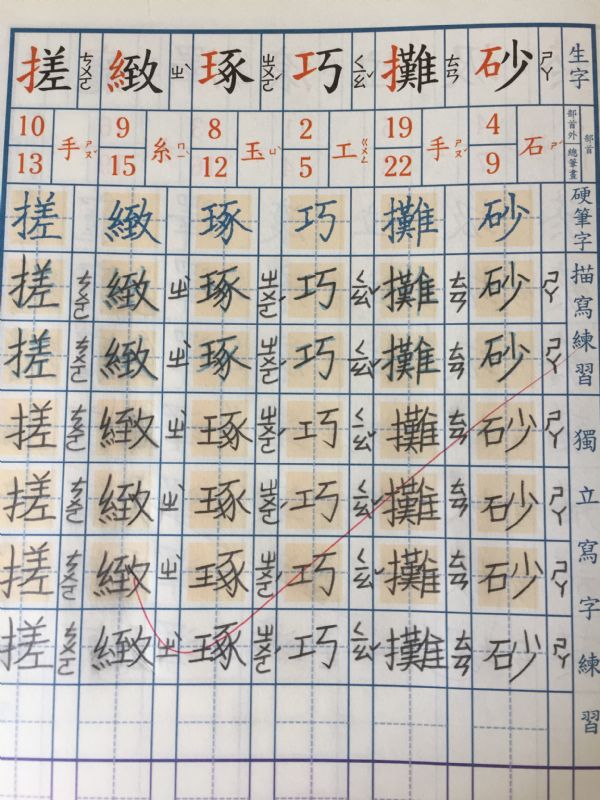 生字
部首
部首外
總筆畫
硬筆字
描寫練習
獨立寫字練習
砂 ㄕㄚ
石 ㄕˊ
4
9
砂
砂 ㄕㄚ
砂 ㄕㄚ
砂 ㄕㄚ
砂 ㄕㄚ
砂 ㄕㄚ
砂 ㄕㄚ
攤 ㄊㄢ
手 ㄕㄡˇ
19
22
攤
攤 ㄊㄢ
攤 ㄊㄢ
攤 ㄊㄢ
攤 ㄊㄢ
攤 ㄊㄢ
攤 ㄊㄢ
巧 ㄑㄧㄠˇ
工 ㄍㄨㄥ
2
5
巧
巧 ㄑㄧㄠˇ
巧 ㄑㄧㄠˇ
巧 ㄑㄧㄠˇ
巧 ㄑㄧㄠˇ
巧 ㄑㄧㄠˇ
巧 ㄑㄧㄠˇ
琢 ㄓㄨㄛˊ
玉 ㄩˋ
8
12
琢
琢 ㄓㄨㄛˊ
琢 ㄓㄨㄛˊ
琢 ㄓㄨㄛˊ
琢 ㄓㄨㄛˊ
琢 ㄓㄨㄛˊ
琢 ㄓㄨㄛˊ
緻 ㄓˋ
糸 ㄇㄧˋ
9
15
緻
緻 ㄓˋ
緻 ㄓˋ
緻 ㄓˋ
緻 ㄓˋ
緻 ㄓˋ
緻 ㄓˋ
搓 ㄘㄨㄛ
手 ㄕㄡˇ
10
13
搓
搓 ㄘㄨㄛ
搓 ㄘㄨㄛ
搓 ㄘㄨㄛ
搓 ㄘㄨㄛ
搓 ㄘㄨㄛ
搓 ㄘㄨㄛ